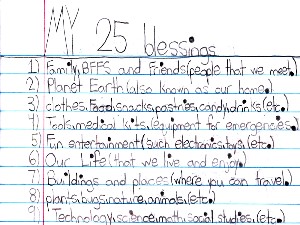 MY 25 blessings
1) Family, BFFS and Friends (people that we meet.)
2) Planet Earth (also known as our home.)
3) clothes, Food, snacks, pastries, candy, drinks, (etc.)
4) Tools, medical kits, (equipment for emergencies.)
5) Fun entertainment (such electronics, toys, (etc.)
6) Our Life (that we live and enjoy.)
7) Buildings and places (where you can travel.)
8) plants, bugs, nature, animals, (etc.)
9) Technology, science, math, social studies, (etc.)